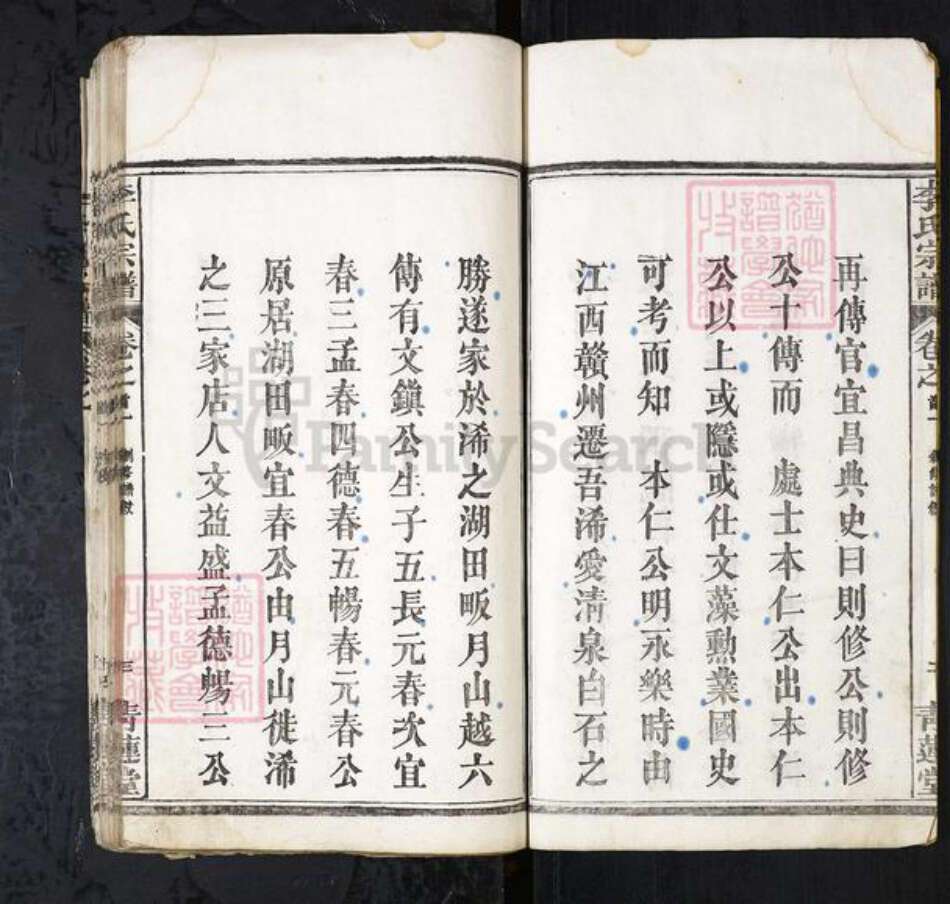 李氏宗譜
卷之一
青蓮堂
猶他
譜學會
收藏
再傳官宜昌典史曰則修公則修
公十傳而 處士本仁公出本仁
公以上或隱或仕文藻勲業國史
可考而知 本仁公明永樂時由
江西贛州遷吾浠愛清泉白石之
勝遂家於浠之湖田畈月山越六
傳有文鎭公生子五長元春次宜
春三孟春四德春五暢春元春公
原居湖田畈宜春公由月山徙浠
之三家店人文益盛孟德暢三公
李氏宗譜
卷之一
三
青蓮堂
猶他
譜學會
收藏
FamilySearch